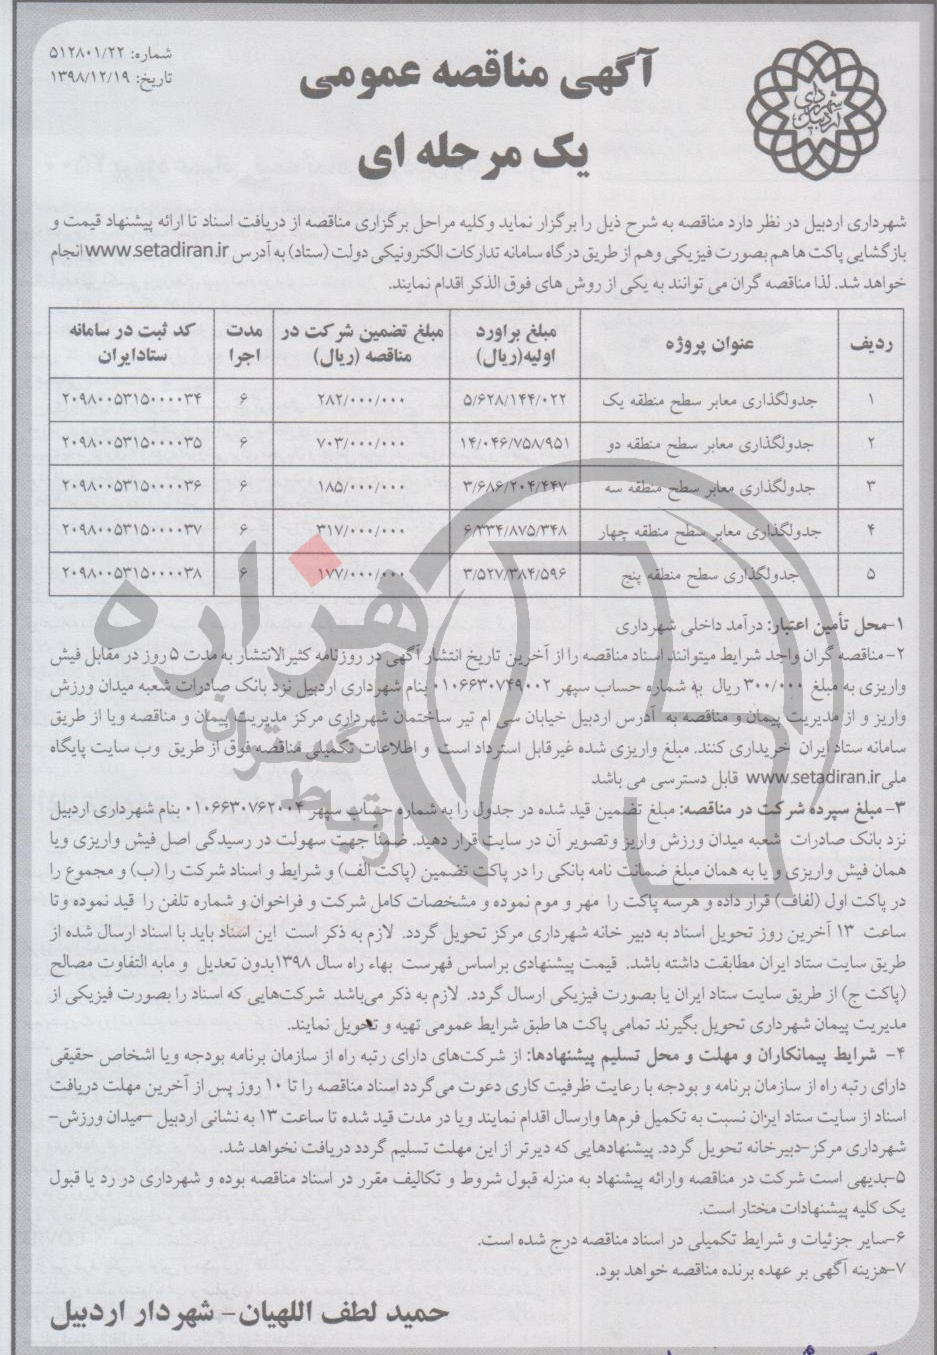 شماره: ۵۱۲۸۰۱/۲۲
تاریخ: ۱۳۹۸/۱۲/۱۹
شهرداری اردبیل
آگهی مناقصه عمومی
یک مرحله ای
شهرداری اردبیل در نظر دارد مناقصه به شرح ذیل را برگزار نماید وکلیه مراحل برگزاری مناقصه از دریافت اسناد تا ارائه پیشنهاد قیمت و
بازگشایی پاکت ها هم بصورت فیزیکی وهم از طریق درگاه سامانه تدارکات الکترونیکی دولت (ستاد) به آدرس www.setadiran.ir انجام
خواهد شد. لذا مناقصه گران می توانند به یکی از روش های فوق الذکر اقدام نمایند.
ردیف عنوان پروژه مبلغ براورد اولیه(ریال) مبلغ تضمین شرکت در مناقصه (ریال) مدت اجرا کد ثبت در سامانه ستادایران
۱ جدولگذاری معابر سطح منطقه یک ۵/۶۲۸/۱۴۴/۰۲۲ ۲۸۲/۰۰۰/۰۰۰ ۶ ۲۰۹۸۰۰۵۳۱۵۰۰۰۰۳۴
۲ جدولگذاری معابر سطح منطقه دو ۱۴/۰۴۶/۷۵۸/۹۵۱ ۷۰۳/۰۰۰/۰۰۰ ۶ ۲۰۹۸۰۰۵۳۱۵۰۰۰۰۳۵
۳ جدولگذاری معابر سطح منطقه سه ۳/۶۸۶/۲۰۴/۴۴۷ ۱۸۵/۰۰۰/۰۰۰ ۶ ۲۰۹۸۰۰۵۳۱۵۰۰۰۰۳۶
۴ جدولگذاری معابر سطح منطقه چهار ۶/۳۳۴/۸۷۵/۳۴۸ ۳۱۷/۰۰۰/۰۰۰ ۶ ۲۰۹۸۰۰۵۳۱۵۰۰۰۰۳۷
۵ جدولگذاری سطح منطقه پنج ۳/۵۲۷/۳۸۴/۵۹۶ ۱۷۷/۰۰۰/۰۰۰ ۶ ۲۰۹۸۰۰۵۳۱۵۰۰۰۰۳۸
۱-محل تأمین اعتبار: درآمد داخلی شهرداری
۲-مناقصه گران واجد شرایط میتوانند اسناد مناقصه را از آخرین تاریخ انتشار آگهی در روزنامه کثیرالانتشار به مدت ۵ روز در مقابل فیش
واریزی به مبلغ ۳۰۰/۰۰۰ ریال به شماره حساب سپهر ۰۱۰۶۶۳۰۷۴۹۰۰۲ بنام شهرداری اردبیل نزد بانک صادرات شعبه میدان ورزش
واریز و از مدیریت پیمان و مناقصه به آدرس اردبیل خیابان سی ام تیر ساختمان شهرداری مرکز مدیریت پیمان و مناقصه ویا از طریق
سامانه ستاد ایران خریداری کنند. مبلغ واریزی شده غیرقابل استرداد است و اطلاعات تکمیلی مناقصه فوق از طریق وب سایت پایگاه
ملی www.setadiran.ir قابل دسترسی می باشد
۳-مبلغ سپرده شرکت در مناقصه: مبلغ تضمین قید شده در جدول را به شماره حساب سپهر ۰۱۰۶۶۳۰۷۶۲۰۰۴ بنام شهرداری اردبیل
نزد بانک صادرات شعبه میدان ورزش واریز وتصویر آن در سایت قرار دهید. ضمنا جهت سهولت در رسیدگی اصل فیش واریزی ویا
همان فیش واریزی و یا به همان مبلغ ضمانت نامه بانکی را در پاکت تضمین (پاکت الف) و شرایط و اسناد شرکت را (ب) و مجموع را
در پاکت اول (لفاف) قرار داده و هرسه پاکت را مهر و موم نموده و مشخصات کامل شرکت و فراخوان و شماره تلفن را قید نموده وتا
ساعت ۱۳ آخرین روز تحویل اسناد به دبیر خانه شهرداری مرکز تحویل گردد. لازم به ذکر است این اسناد باید با اسناد ارسال شده از
طریق سایت ستاد ایران مطابقت داشته باشد. قیمت پیشنهادی براساس فهرست بهاء راه سال ۱۳۹۸بدون تعدیل و مابه التفاوت مصالح
(پاکت ج) از طریق سایت ستاد ایران یا بصورت فیزیکی ارسال گردد. لازم به ذکر می‌باشد شرکت‌هایی که اسناد را بصورت فیزیکی از
مدیریت پیمان شهرداری تحویل بگیرند تمامی پاکت ها طبق شرایط عمومی تهیه و تحویل نمایند.
۴- شرایط پیمانکاران و مهلت و محل تسلیم پیشنهادها: از شرکت‌های دارای رتبه راه از سازمان برنامه بودجه ویا اشخاص حقیقی
دارای رتبه راه از سازمان برنامه و بودجه با رعایت ظرفیت کاری دعوت می‌گردد اسناد مناقصه را تا ۱۰ روز پس از آخرین مهلت دریافت
اسناد از سایت ستاد ایران نسبت به تکمیل فرم‌ها وارسال اقدام نمایند ویا در مدت قید شده تا ساعت ۱۳ به نشانی اردبیل –میدان ورزش–
شهرداری مرکز–دبیرخانه تحویل گردد. پیشنهادهایی که دیرتر از این مهلت تسلیم گردد دریافت نخواهد شد.
۵-بدیهی است شرکت در مناقصه وارائه پیشنهاد به منزله قبول شروط و تکالیف مقرر در اسناد مناقصه بوده و شهرداری در رد یا قبول
یک کلیه پیشنهادات مختار است.
۶-سایر جزئیات و شرایط تکمیلی در اسناد مناقصه درج شده است.
۷-هزینه آگهی بر عهده برنده مناقصه خواهد بود.
حمید لطف اللهیان– شهردار اردبیل
هزاره